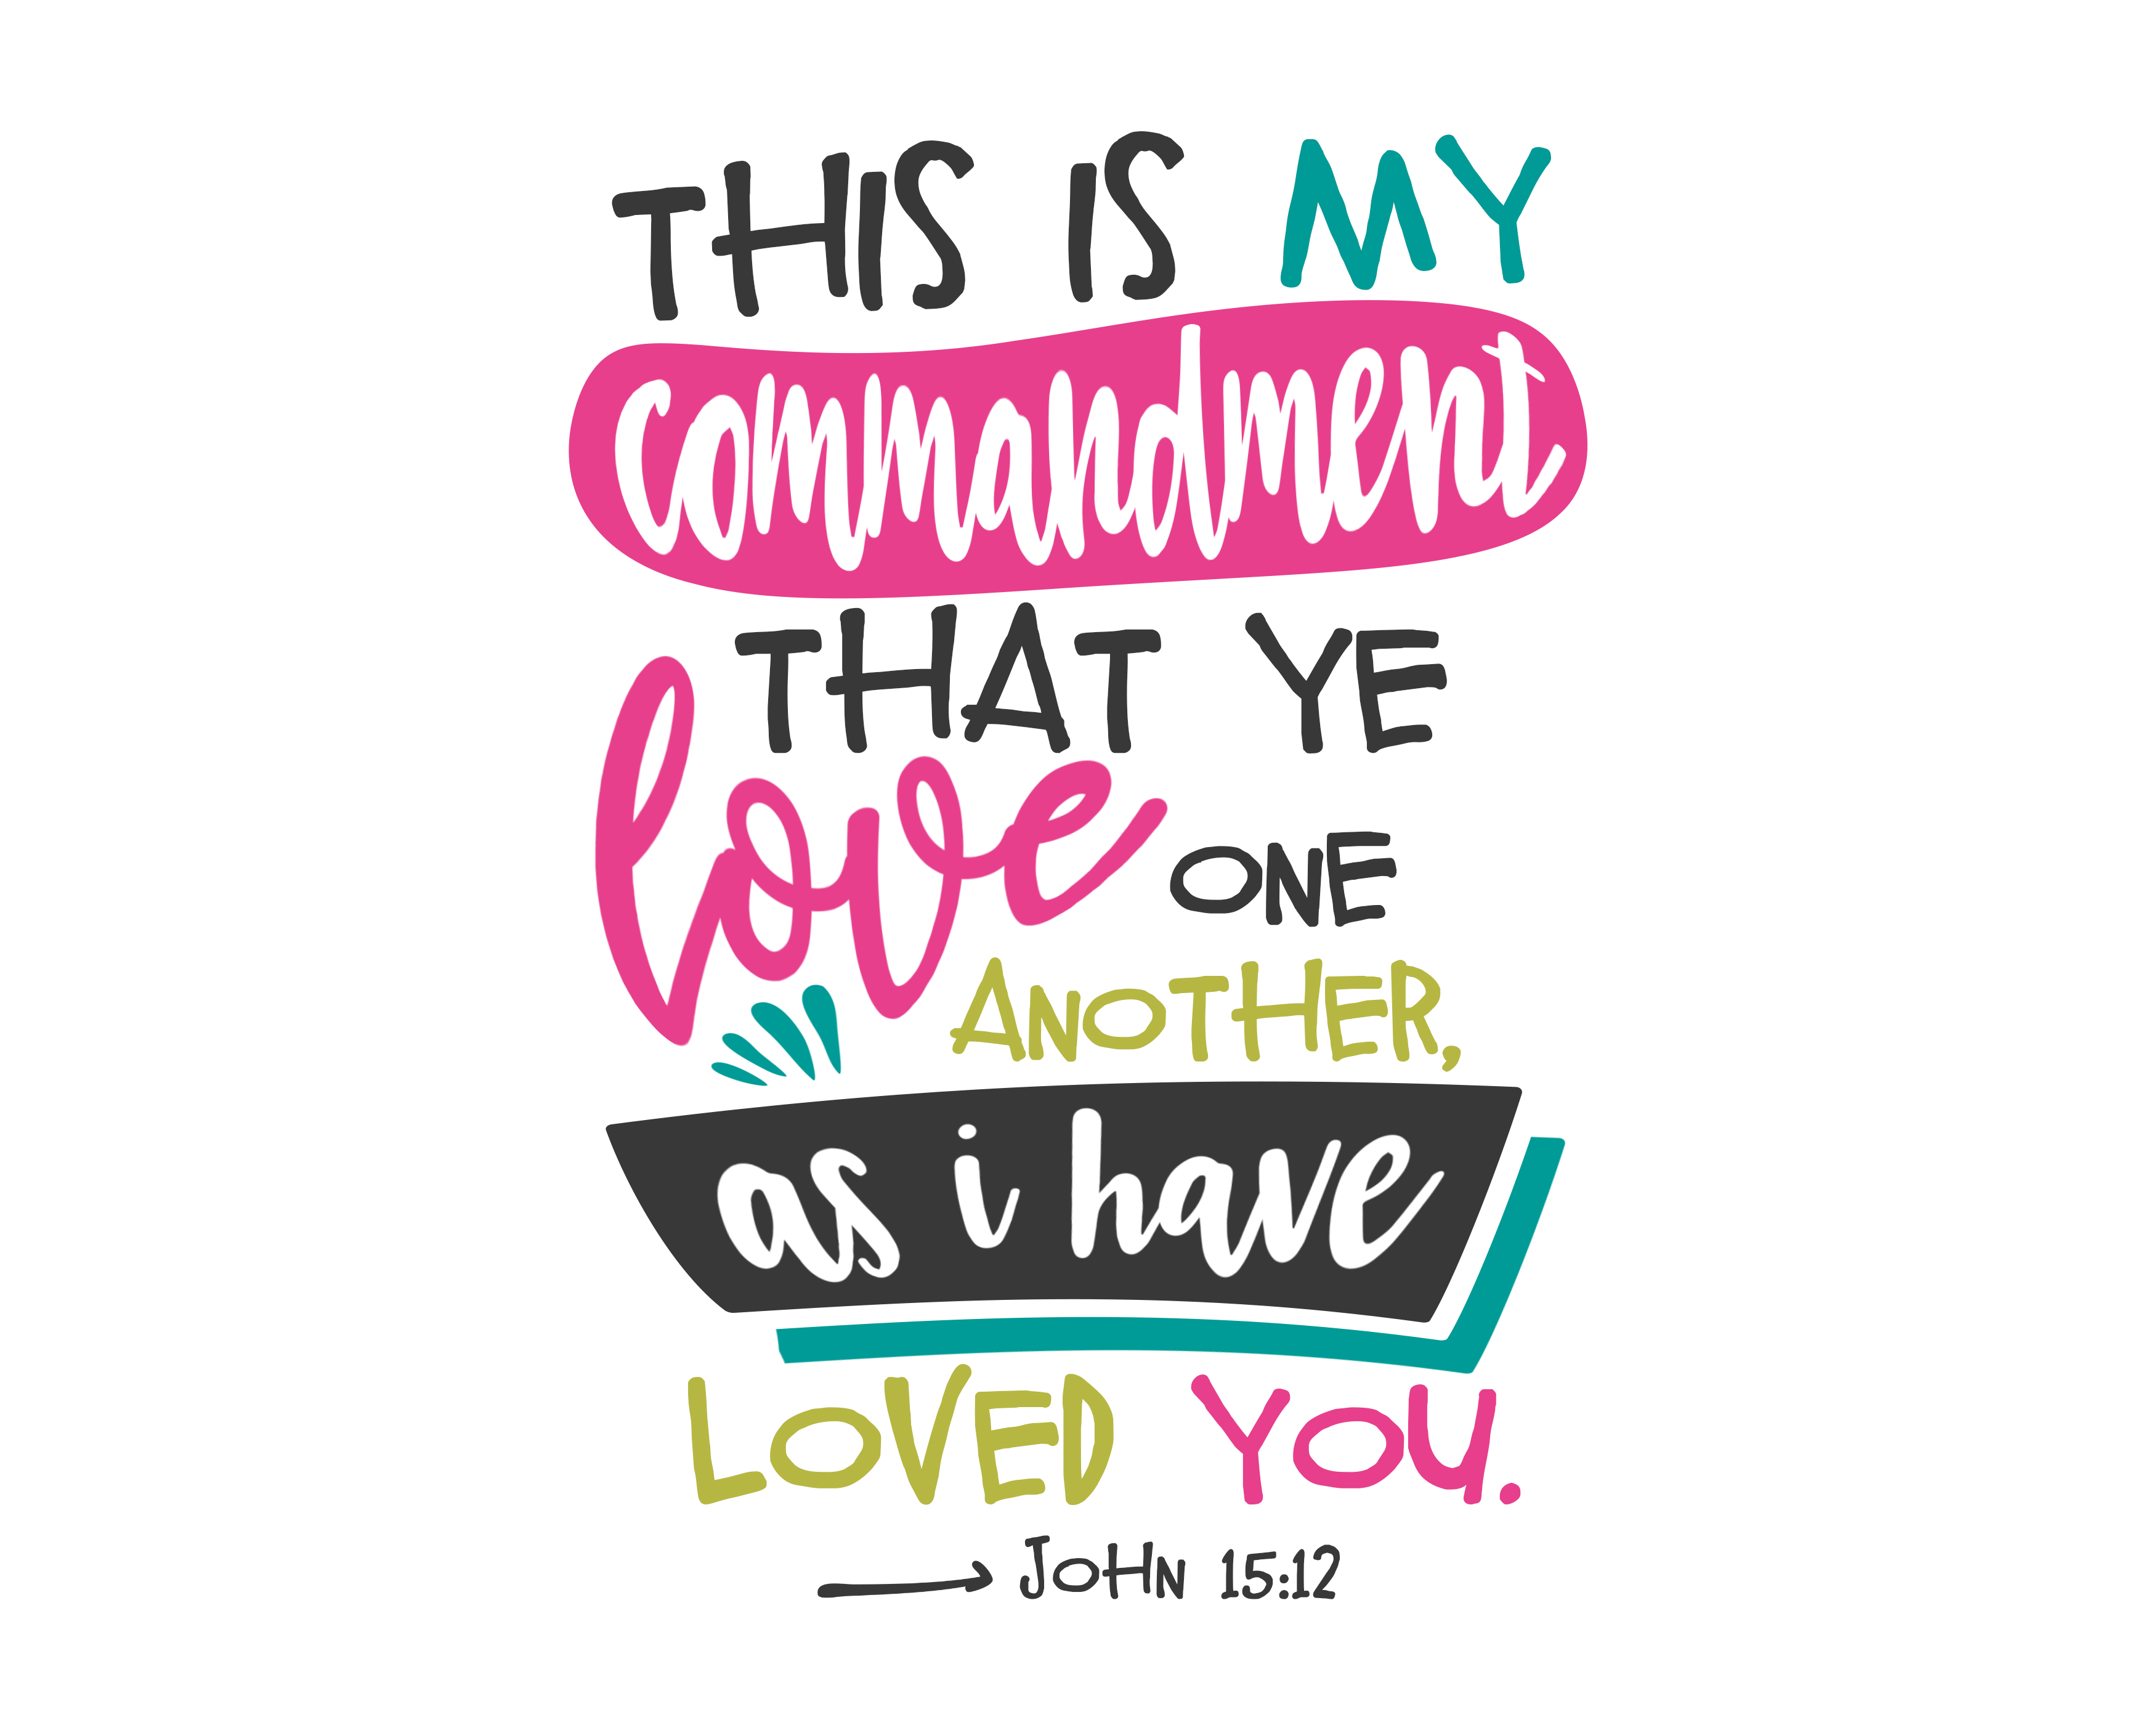 THIS IS MY
commandment
THAT YE
love ONE
ANOTHER,
as i have
LOVED YOU.
JOHN 15:12